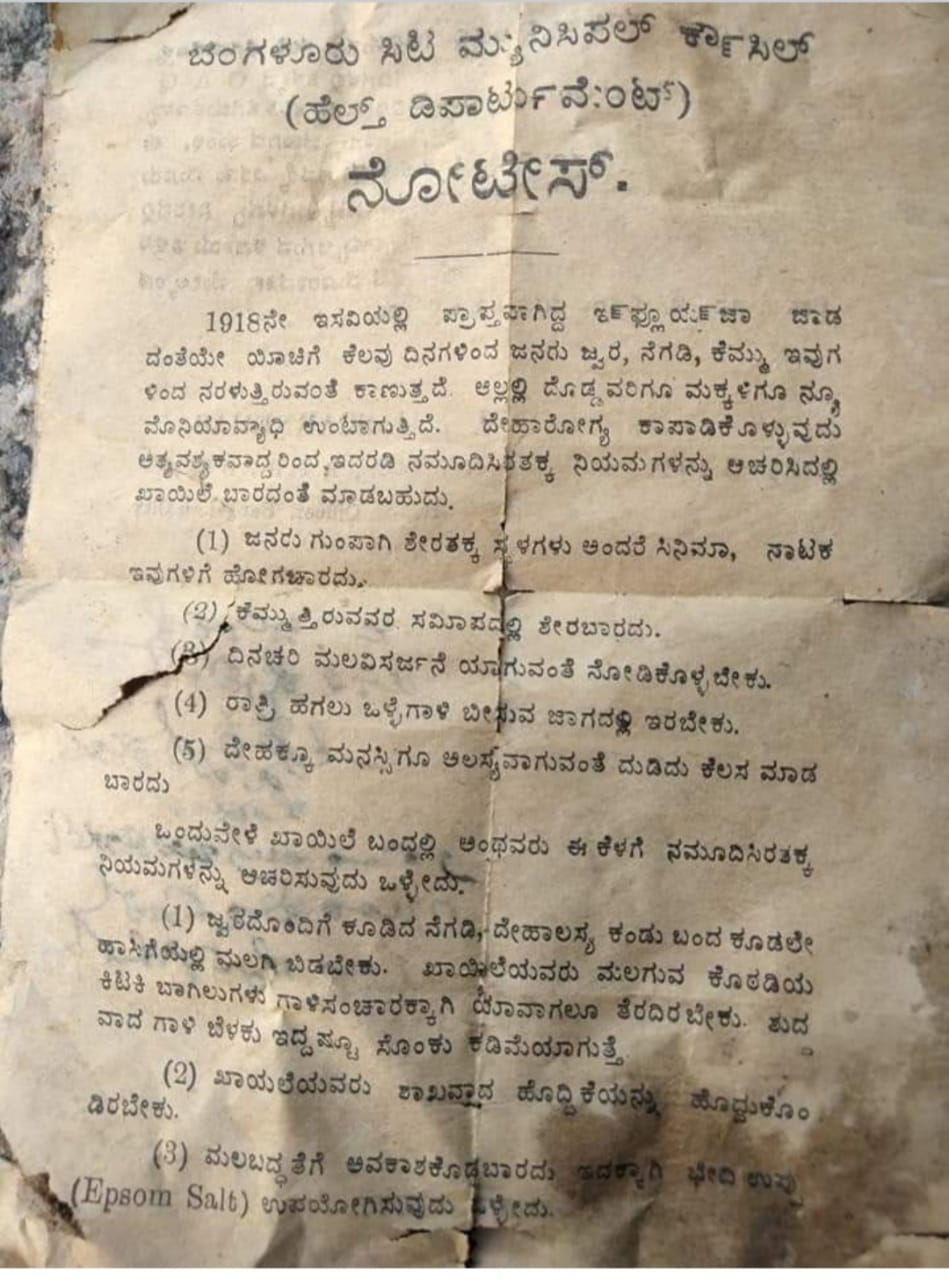 ಬೆಂಗಳೂರು ಸಿಟಿ ಮ್ಯುನಿಸಿಪಲ್ ಕೌನ್ಸಿಲ್
(ಹೆಲ್ತ್ ಡಿಪಾರ್ಟುಮೆಂಟ್)
ನೋಟೀಸ್.
1918ನೇ ಇಸವಿಯಲ್ಲಿ ಪ್ರಾಪ್ತವಾಗಿದ್ದ ಇನ್‌ಫ್ಲೂಯನ್‌ಜಾ ಜಾಡ
ದಂತೆಯೇ ಯೀಚೆಗೆ ಕೆಲವು ದಿನಗಳಿಂದ ಜನರು ಜ್ವರ, ನೆಗಡಿ, ಕೆಮ್ಮು ಇವುಗ
ಳಿಂದ ನರಳುತ್ತಿರುವಂತೆ ಕಾಣುತ್ತದೆ. ಅಲ್ಲಲ್ಲಿ ದೊಡ್ಡವರಿಗೂ ಮಕ್ಕಳಿಗೂ ನ್ಯೂ
ಮೊನಿಯಾವ್ಯಾಧಿ ಉಂಟಾಗುತ್ತಿದೆ. ದೇಹಾರೋಗ್ಯ ಕಾಪಾಡಿಕೊಳ್ಳುವುದು
ಅತ್ಯವಶ್ಯಕವಾದ್ದರಿಂದ, ಇದರಡಿ ನಮೂದಿಸಿರತಕ್ಕ ನಿಯಮಗಳನ್ನು ಆಚರಿಸಿದಲ್ಲಿ
ಖಾಯಿಲೆ ಬಾರದಂತೆ ಮಾಡಬಹುದು.
(1) ಜನರು ಗುಂಪಾಗಿ ಶೇರತಕ್ಕ ಸ್ಥಳಗಳು ಅಂದರೆ ಸಿನಿಮಾ, ನಾಟಕ
ಇವುಗಳಿಗೆ ಹೋಗಬಾರದು.
(2) ಕೆಮ್ಮುತ್ತಿರುವವರ ಸಮೀಪದಲ್ಲಿ ಶೇರಬಾರದು.
(3) ದಿನಚರಿ ಮಲವಿಸರ್ಜನೆ ಯಾಗುವಂತೆ ನೋಡಿಕೊಳ್ಳಬೇಕು.
(4) ರಾತ್ರಿ ಹಗಲು ಒಳ್ಳೆಗಾಳಿ ಬೀಸುವ ಜಾಗದಲ್ಲಿ ಇರಬೇಕು.
(5) ದೇಹಕ್ಕೂ ಮನಸ್ಸಿಗೂ ಆಲಸ್ಯವಾಗುವಂತೆ ದುಡಿದು ಕೆಲಸ ಮಾಡ
ಬಾರದು
ಒಂದುವೇಳೆ ಖಾಯಿಲೆ ಬಂದಲ್ಲಿ ಅಂಥವರು ಈ ಕೆಳಗೆ ನಮೂದಿಸಿರತಕ್ಕ
ನಿಯಮಗಳನ್ನು ಆಚರಿಸುವುದು ಒಳ್ಳೇದು.
(1) ಜ್ವರದೊಂದಿಗೆ ಕೂಡಿದ ನೆಗಡಿ, ದೇಹಾಲಸ್ಯ ಕಂಡು ಬಂದ ಕೂಡಲೇ
ಹಾಸಿಗೆಯಲ್ಲಿ ಮಲಗಿ ಬಿಡಬೇಕು. ಖಾಯಿಲೆಯವರು ಮಲಗುವ ಕೊಠಡಿಯ
ಕಿಟಕಿ ಬಾಗಿಲುಗಳು ಗಾಳಿಸಂಚಾರಕ್ಕಾಗಿ ಯಾವಾಗಲೂ ತೆರದಿರಬೇಕು. ಶುದ್ಧ
ವಾದ ಗಾಳಿ ಬೆಳಕು ಇದ್ದಷ್ಟೂ ಸೊಂಕು ಕಡಿಮೆಯಾಗುತ್ತೆ
(2) ಖಾಯಲೆಯವರು ಶಾಖವಾದ ಹೊದ್ದಿಕೆಯನ್ನು ಹೊದ್ದುಕೊಂ
ಡಿರಬೇಕು.
(3) ಮಲಬದ್ಧತೆಗೆ ಅವಕಾಶಕೊಡಬಾರದು ಇದಕ್ಕಾಗಿ ಭೇದಿ ಉಪ್ಪು
(Epsom Salt) ಉಪಯೋಗಿಸುವುದು ಒಳ್ಳೇದು.